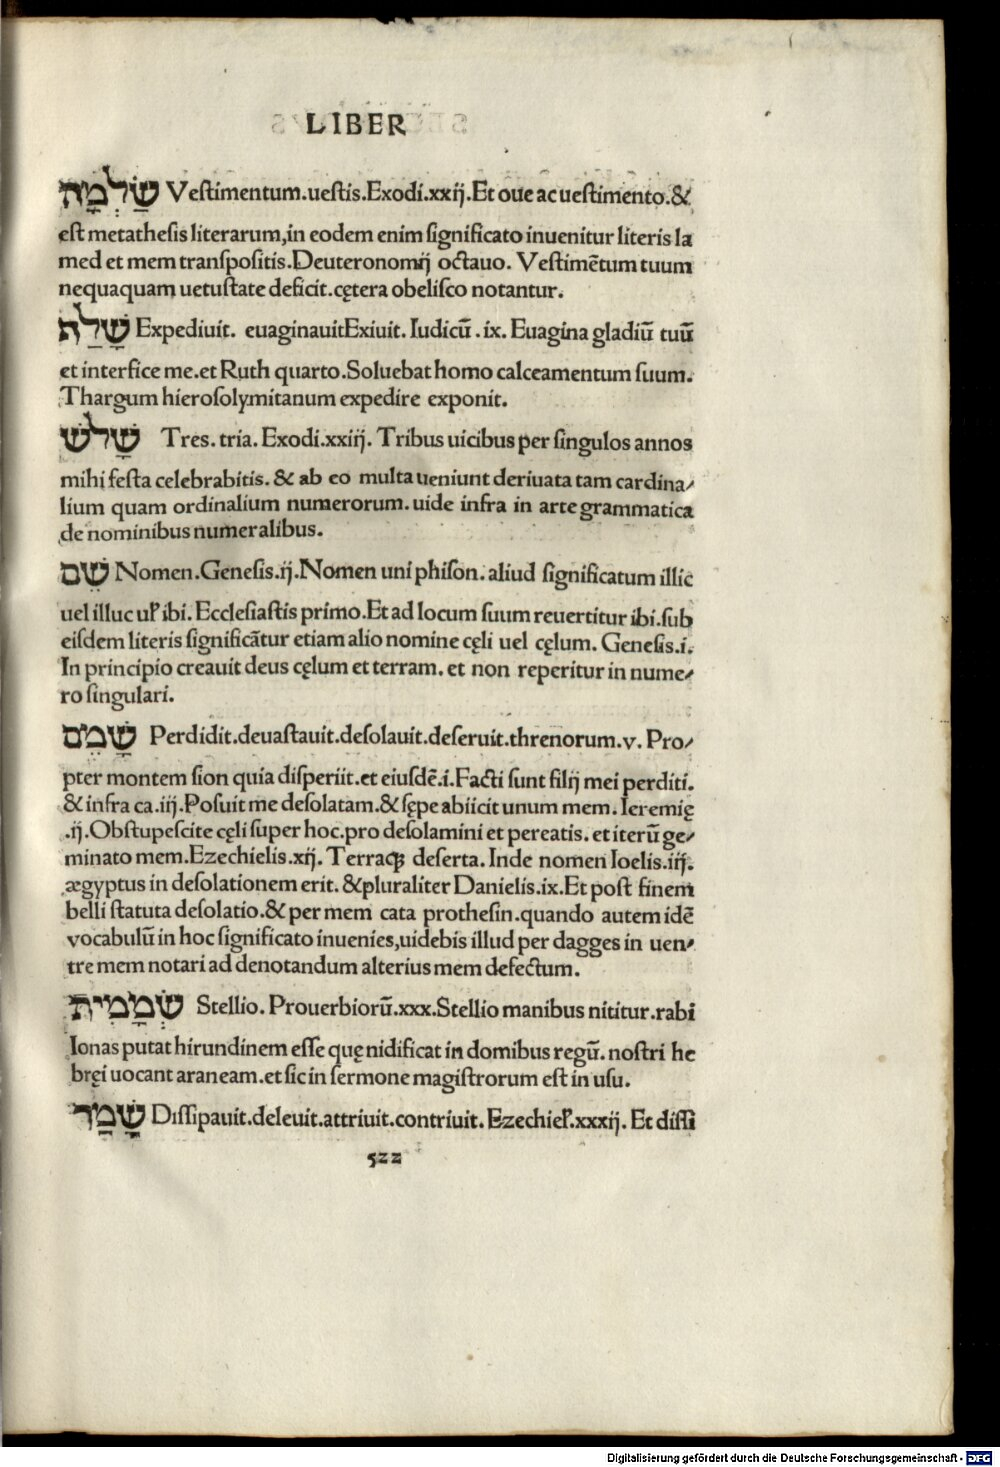 LIBER
שַׂלְמָה Vestimentum.uestis.Exodi.xxij.Et oue ac uestimento.&
est metathesis literarum,in eodem enim significato inuenitur literis la
med et mem transpositis.Deuteronomij octauo. Vestimētum tuum
nequaquam uetustate deficit.cętera obelisco notantur.
שָׁלַה Expediuit. euaginauitExiuit. Iudicū.ix. Euagina gladiū tuū
et interfice me.et Ruth quarto.Soluebat homo calceamentum suum.
Thargum hierosolymitanum expedire exponit.
שָׁלשׁ Tres. tria. Exodi.xxiij. Tribus uicibus per singulos annos
mihi festa celebrabitis. & ab eo multa ueniunt deriuata tam cardina⸗
lium quam ordinalium numerorum. uide infra in arte grammatica
de nominibus numeralibus.
שֵׁם Nomen.Genesis.ij.Nomen uni phison. aliud significatum illic
uel illuc ul̕ ibi. Ecclesiastis primo.Et ad locum suum reuertitur ibi.sub
eisdem literis significātur etiam alio nomine cęli uel cęlum. Genesis.i.
In principio creauit deus cęlum et terram. et non reperitur in nume⸗
ro singulari.
שָׁמֵם Perdidit.deuastauit.desolauit.deseruit.threnorum.v. Pro⸗
pter montem sion quia disperiit.et eiusdē.i.Facti sunt filij mei perditi.
& infra ca.iij.Posuit me desolatam.& sępe abiicit unum mem. Ieremię
.ij.Obstupescite cęli super hoc.pro desolamini et pereatis. et iterū ge⸗
minato mem.Ezechielis.xij. Terraqꝫ deserta. Inde nomen Ioelis.iij.
ægyptus in desolationem erit. &pluraliter Danielis.ix.Et post finem
belli statuta desolatio.& per mem cata prothesin.quando autem idē
vocabulū in hoc significato inuenies,uidebis illud per dagges in uen⸗
tre mem notari ad denotandum alterius mem defectum.
שְׂמָמִית Stellio. Prouerbiorū.xxx.Stellio manibus nititur.rabi
Ionas putat hirundinem esse quę nidificat in domibus regū. nostri he
bręi uocant araneam.et sic in sermone magistrorum est in usu.
שָׁמַד Dissipauit.deleuit.attriuit.contriuit. Ezechiel̕.xxxij. Et dissi
522
Digitalisierung gefördert durch die Deutsche Forschungsgemeinschaft - DFG